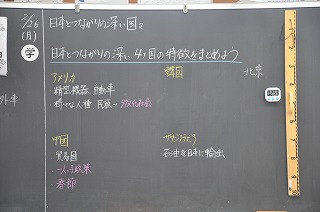 2/26
(月)
学
日本とつながりの深い国々
日本とつながりの深い4ヶ国の特徴をまとめよう
アメリカ
・精密機器、自動車
・様々な人種 民族→多文化社会
韓国
北京
中国
・貿易国
・一人っ子政策
・春節
サウジアラビア
石油を日本に輸出